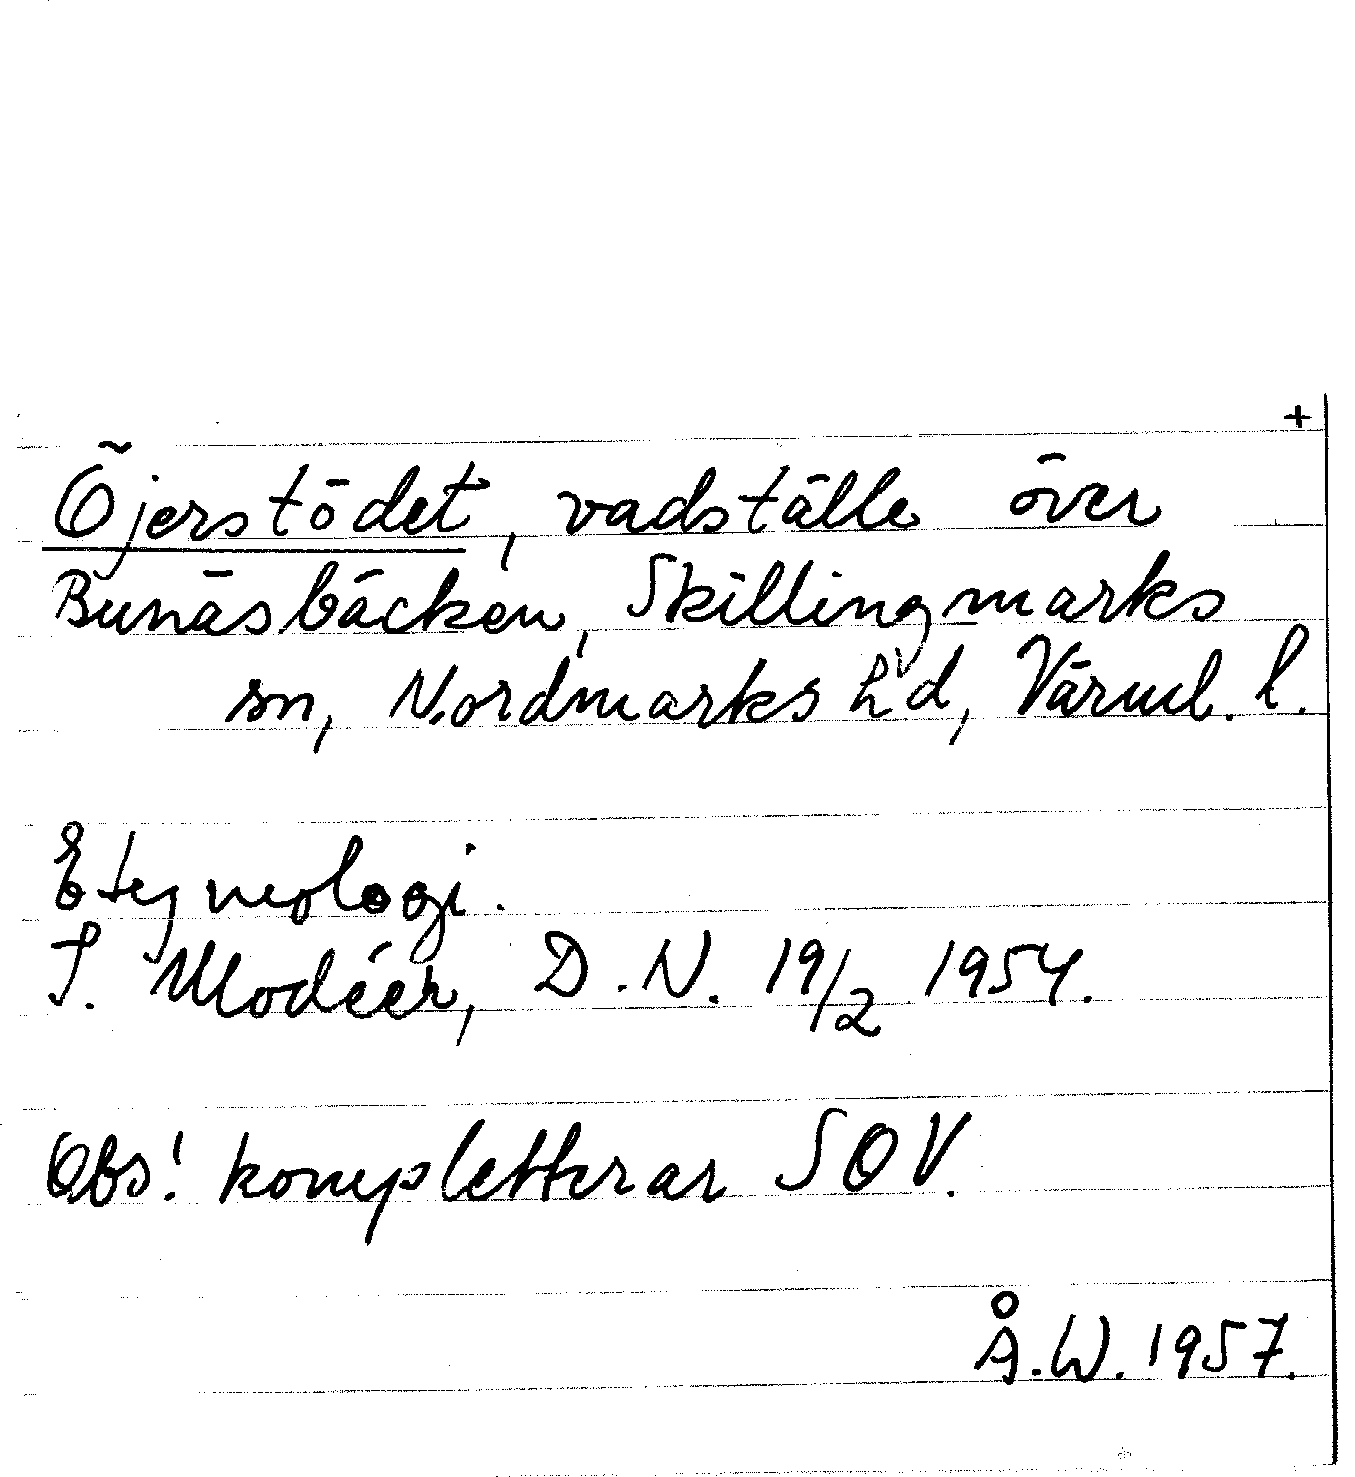 +
Öjerstödet, vadställe över
Bunäsbäcken, Skillingmarks
sn, Nordmarks hd, Värml. l.
Etymologi.
I. Modéer, D.N. 19/2 1954.
Obs! kompletterar SOV.
Å.W. 1957.